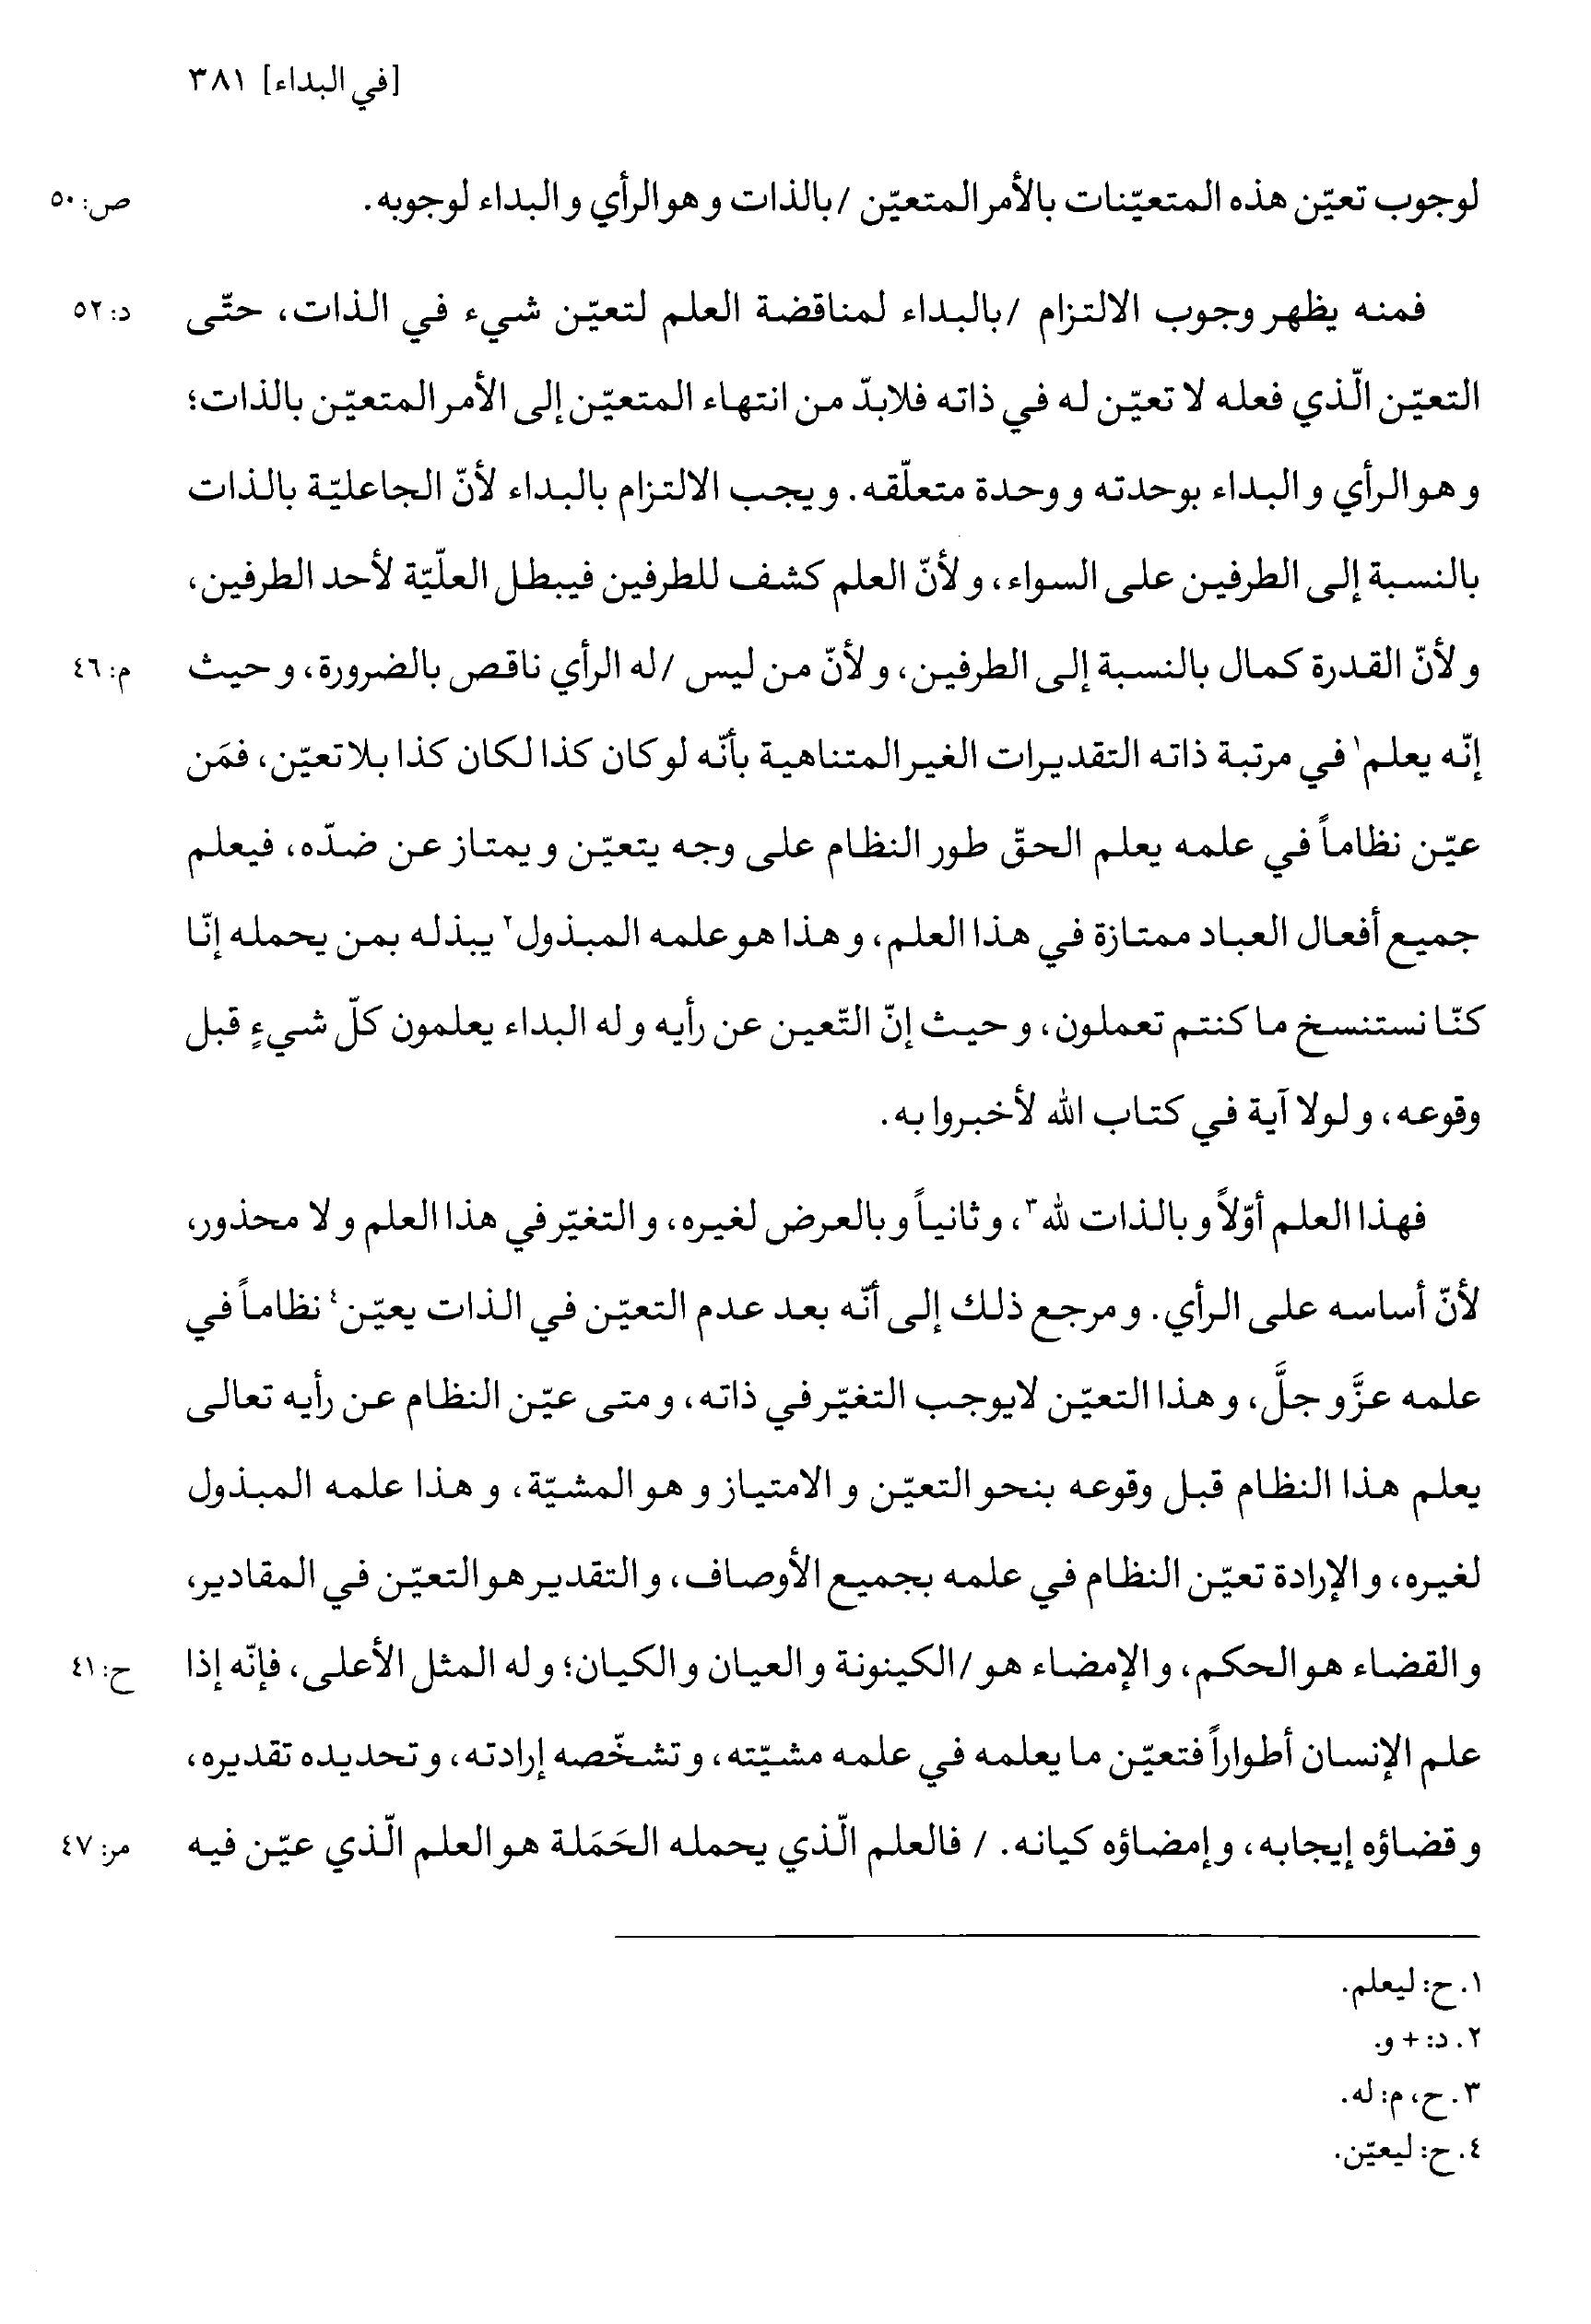 [في البداء] ٣٨١
لوجوب تعيّن هذه المتعيّنات بالأمر المتعيّن /بالذات و هو الرأي و البداء لوجوبه. ص: ٥٠
فمنه يظهر وجوب الالتزام /بالبداء لمناقضة العلم لتعيّن شيء في الذات، حتّى د: ٥٢
التعيّن الّذي فعله لا تعيّن له في ذاته فلابدّ من انتهاء المتعيّن إلى الأمر المتعيّن بالذات؛
و هو الرأي و البداء بوحدته و وحدة متعلّقه. و يجب الالتزام بالبداء لأنّ الجاعليّة بالذات
بالنسبة إلى الطرفين على السواء، و لأنّ العلم كشف للطرفين فيبطل العلّيّة لأحد الطرفين،
و لأنّ القدرة كمال بالنسبة إلى الطرفين، و لأنّ من ليس /له الرأي ناقص بالضرورة، و حيث م: ٤٦
إنّه يعلم١ في مرتبة ذاته التقديرات الغير المتناهية بأنّه لو كان كذا لكان كذا بلا تعيّن، فمَن
عيّن نظاماً في علمه يعلم الحقّ طور النظام على وجه يتعيّن و يمتاز عن ضدّه، فيعلم
جميع أفعال العباد ممتازة في هذا العلم، و هذا هو علمه المبذول٢ يبذله بمن يحمله إنّا
كنّا نستنسخ ما كنتم تعملون، و حيث إنّ التّعين عن رأيه و له البداء يعلمون كلّ شيءٍ قبل
وقوعه، و لولا آية في كتاب الله لأخبروا به.
فهذا العلم أوّلاً و بالذات لله٣، و ثانياً و بالعرض لغيره، و التغيّر في هذا العلم و لا محذور،
لأنّ أساسه على الرأي. و مرجع ذلك إلى أنّه بعد عدم التعيّن في الذات يعيّن٤ نظاماً في
علمه عزَّ و جلَّ، و هذا التعيّن لايوجب التغيّر في ذاته، و متى عيّن النظام عن رأيه تعالى
يعلم هذا النظام قبل وقوعه بنحو التعيّن و الامتياز و هو المشيّة، و هذا علمه المبذول
لغيره، و الإرادة تعيّن النظام في علمه بجميع الأوصاف، و التقدير هو التعيّن في المقادير،
و القضاء هو الحكم، و الإمضاء هو /الكينونة و العيان و الكيان؛ و له المثل الأعلى، فإنّه إذا ح: ٤١
علم الإنسان أطواراً فتعيّن ما يعلمه في علمه مشيّته، و تشخّصه إرادته، و تحديده تقديره،
و قضاؤه إيجابه، و إمضاؤه كيانه. / فالعلم الّذي يحمله الحَمَلة هو العلم الّذي عيّن فيه مر: ٤٧
١. ح: ليعلم.
٢. د: + و.
٣. ح، م: له.
٤. ح: ليعيّن.